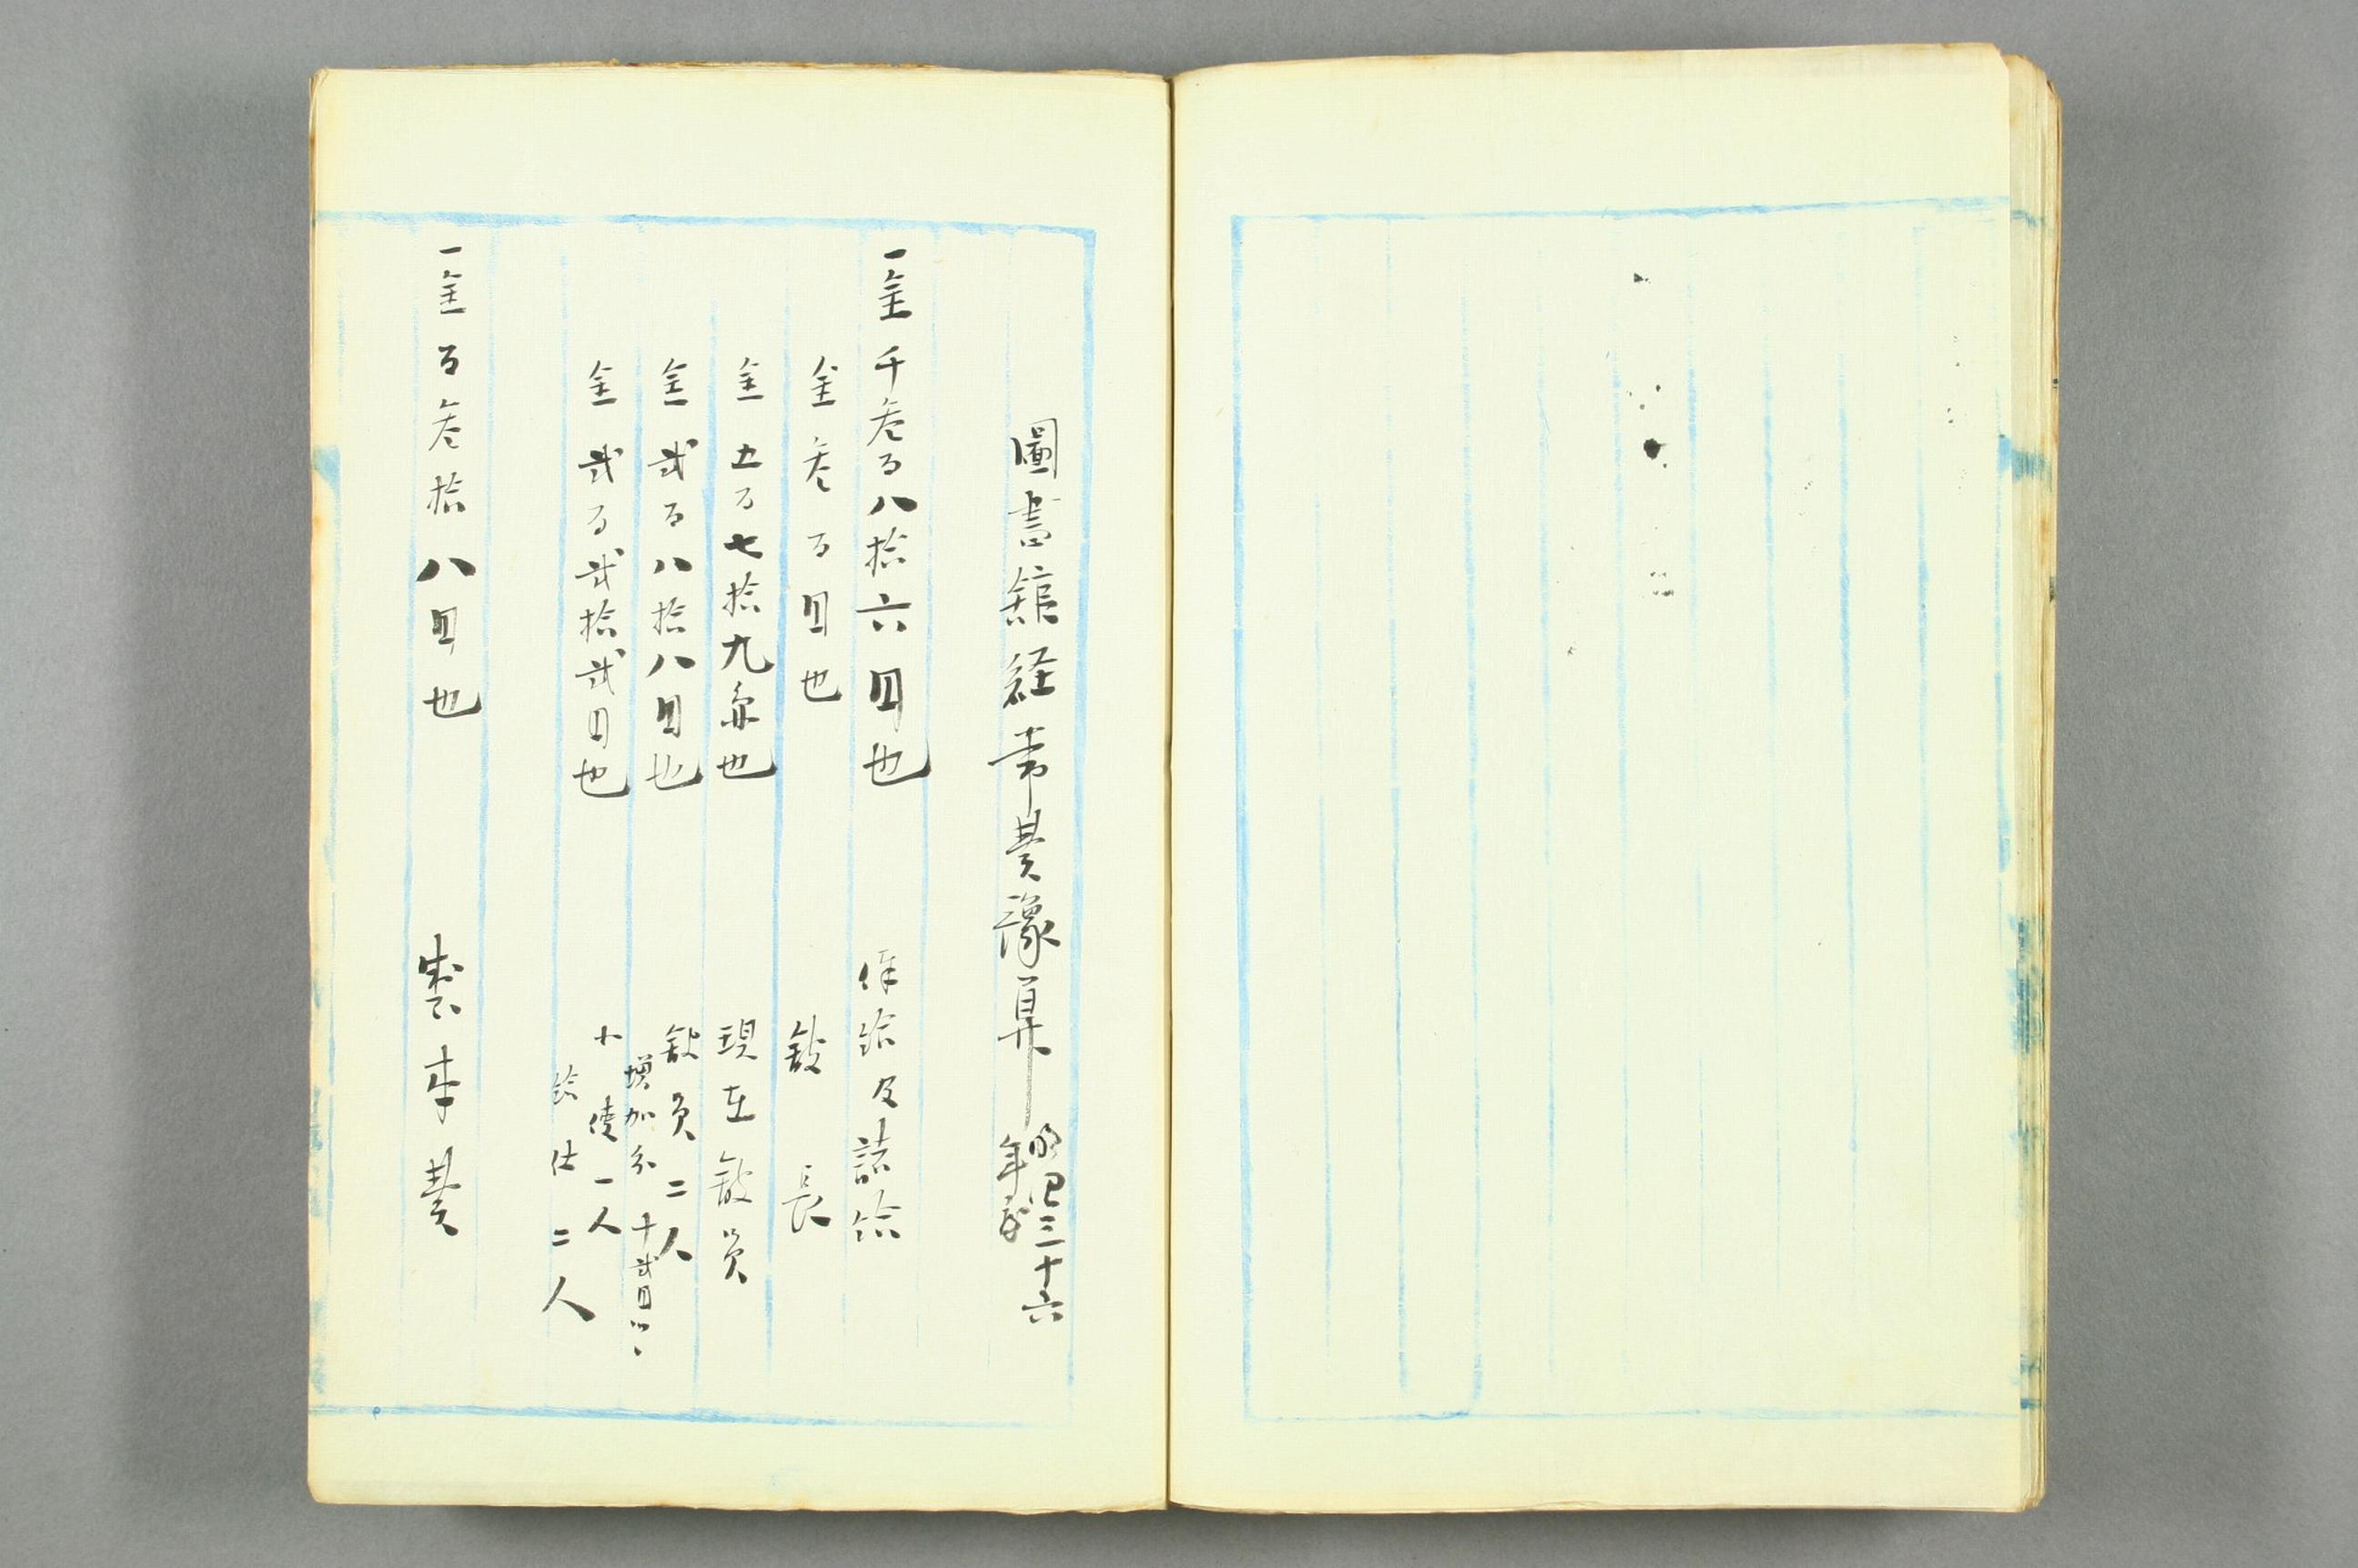 圖書舘経常費豫算 明治三十六年度
一金千叁百八拾六円也 俸給及諸給
金叁百円也 舘長
金五百七拾九 也 現在舘員
金弐百八拾八円也 舘員二人
増加分 十弐円ツヽ
金弐百弐拾弐円也 小使一人
給仕二人
一金百叁拾八円也 製本費